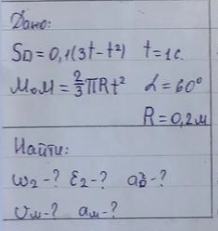 Дано:
S_D = 0,1(3t - t²) t = 1c.
M₀M = 2/3 πRt² α = 60°
R = 0,2м
Найти:
ω₂-? ε₂-? a_D-?
υ_м-? a_м-?